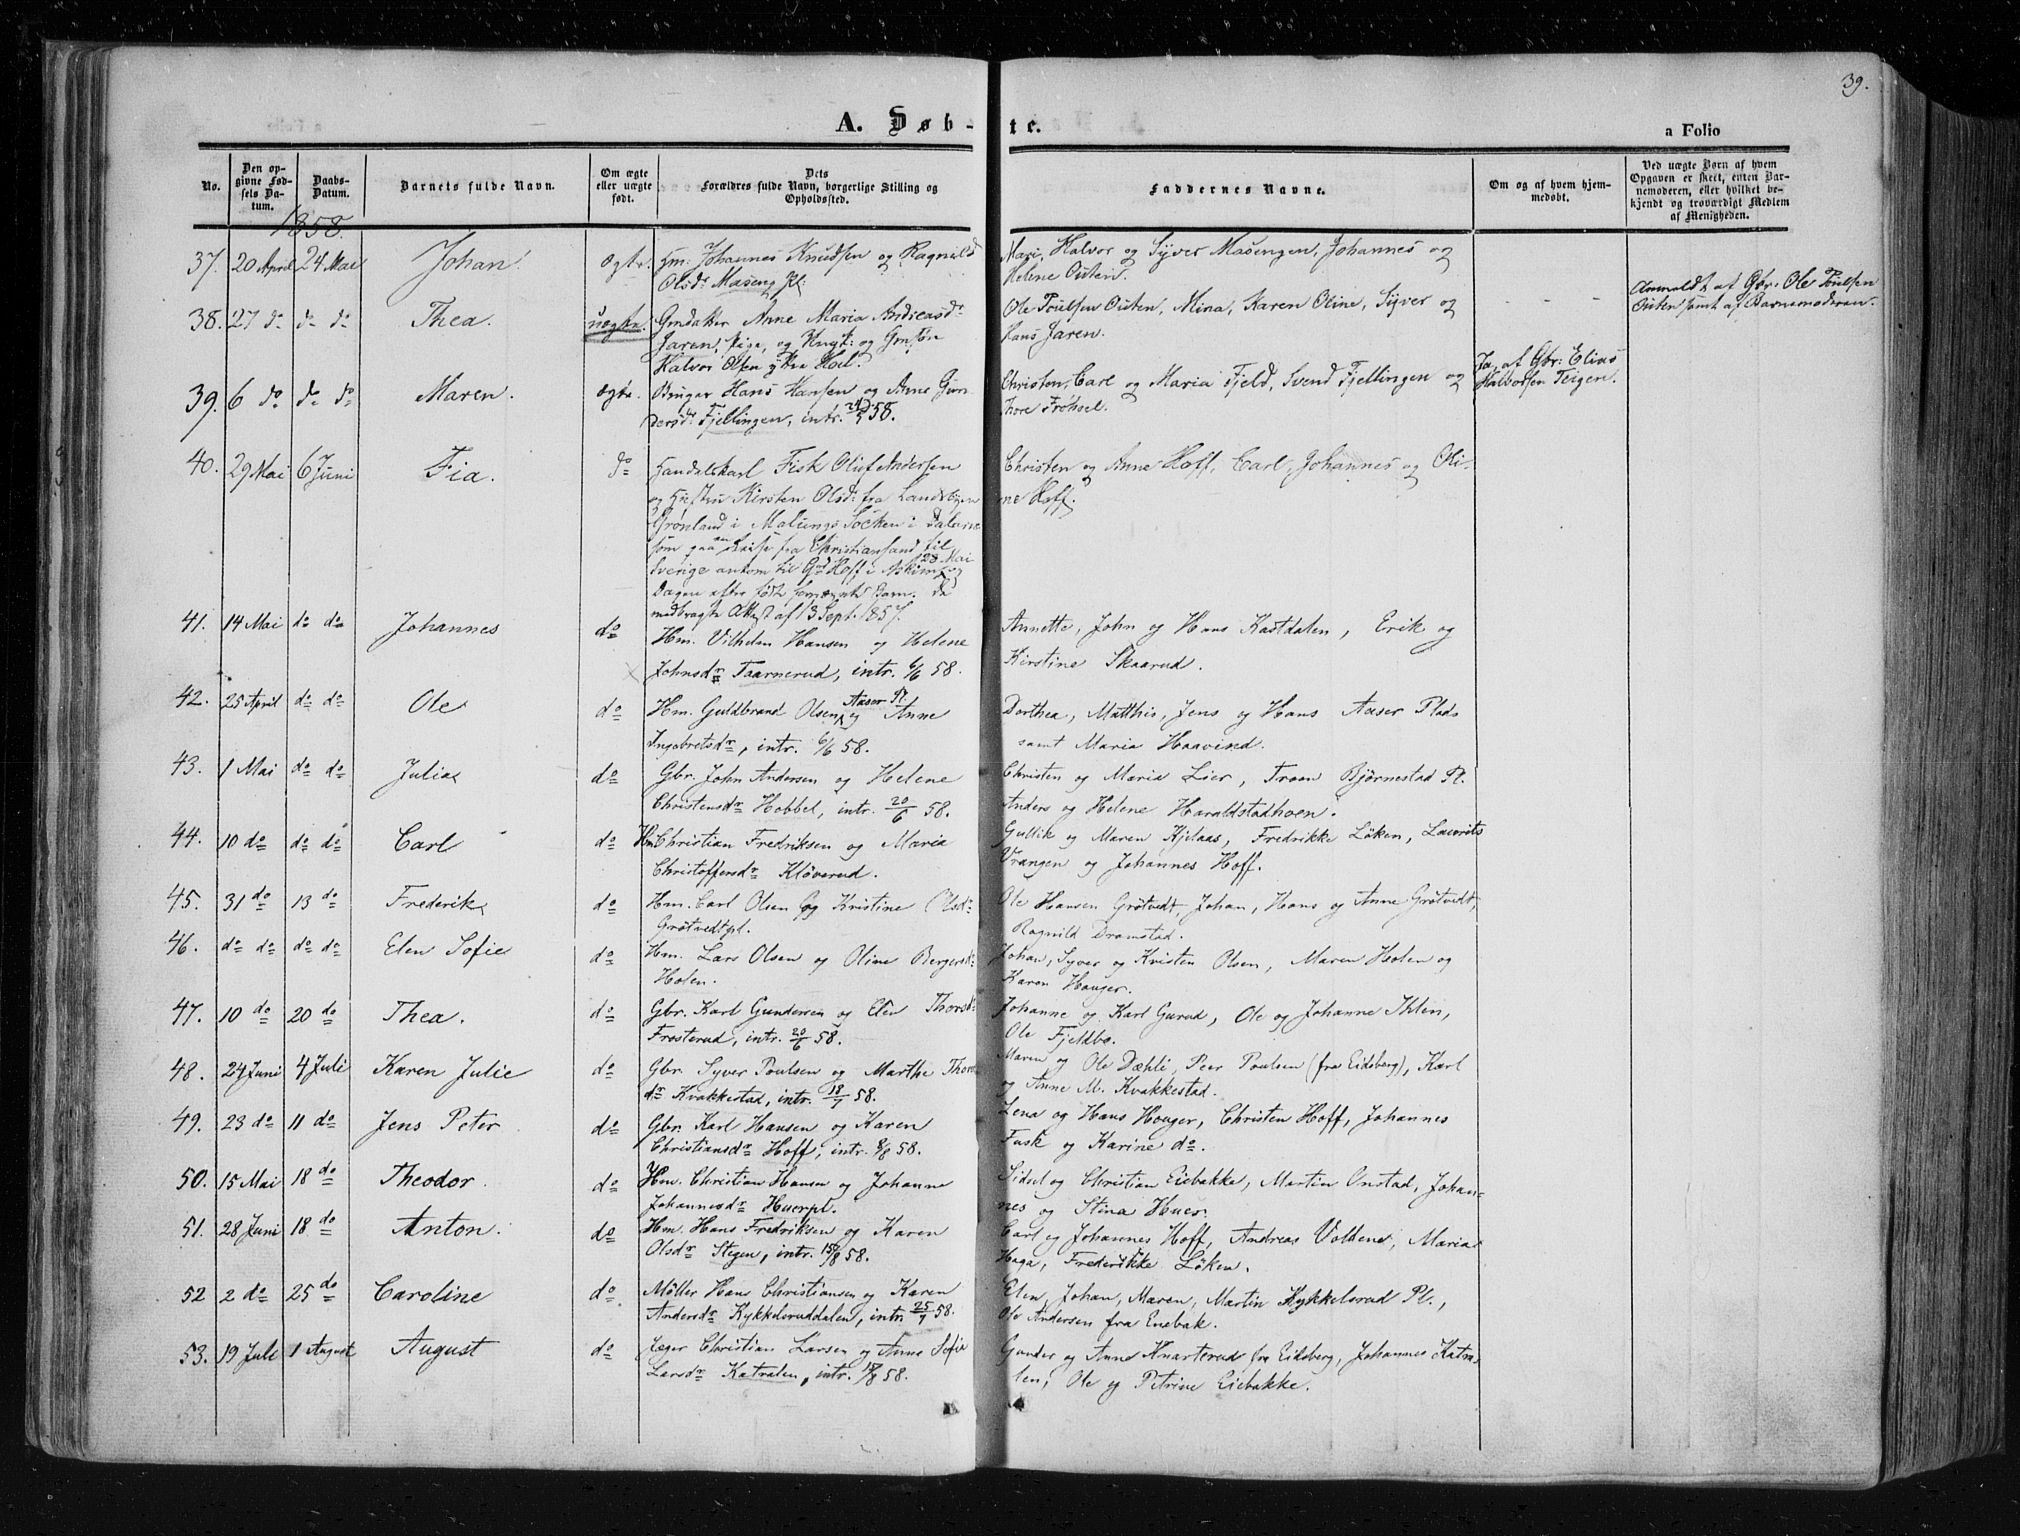 39.
A. Døb-
te.
a Folio
No.
Den op-
givne Fød-
sels Da-
tum.
Daabs-
Datum.
Barnets fulde Navn.
Om ægte
eller uægte
født.
Dets
Forældres fulde Navn, borgerlige Stilling og
Opholdssted.
Faddernes Navne.
Om og af hvem hjem-
medøbt.
Ved uægte Børn af hvem
Opgaven er skeet, enten Bar-
nemoderen, eller hvilket be-
kjendt og troværdigt Medlem
af Menigheden.
1858.
37. 20 April 24 Mai Johan. ægte. Hm: Johannes Knudsen og Ragnild
Olsdr Maseng Pl:
Mari, Halvor og Syver Masengen, Johannes og
Helene Outen.
38. 27 do do do Thea. uægte. Gmdatter Anne Maria Andreasdr
Jaren, Pige, og Ungk: og Gmsøn
Halvor Olsen ytre Hol.
Ole Poulsen Outen, Mina, Karen Oline, Syver og
Hans Jaren.
- - -
Anmeldt af Gbr. Ole Poulsen
Outen samt af Barnemoderen.
39. 6 do do do Maren. ægte. Bruger Hans Hansen og Anne Gun
dersdr Fjellingen, intr. 24/5 58.
Christen, Carl og Maria Fjeld, Svend Fjellingen og
Thore Frøhsel.
Ja, af Gbr: Elius
Halvorsen Teigen.
40. 29 Mai 6 Juni Fia. do Handelskarl Fisk Oluf Andersen
og Hustru Kirsten Olsdr fra Landsbyen
Grønland i Malungs Socken i Dalarne
som paa en Reise fra Christiansand til
Sverige ankom til Gd Hoff i Askim 28 Mai og
Dagen efter fødte Barn. De
medbragte Attest af 13 Sept. 1857.
Christen og Anne Hoff, Carl, Johannes og Oli-
ne Hoff.
41. 14 Mai do do Johannes do Hm. Vilhelm Hansen og Helene
Johnsdr Taarnerud, intr. 6/6 58.
Annette, John og Hans Kastdalen, Erik og
Kirstine Skaarud.
42. 25 April do do Ole do Hm. Guldbrand Olsen Aaser Pl. og Anne
Ingebretsdr, intr. 6/6 58.
Dorthea, Matthis, Jens og Hans Aaser Plads
samt Maria Haavind.
43. 1 Mai do do Julia do Gbr. John Andersen og Helene
Christensdr Hobbel, intr. 20/6 58.
Christen og Maria Lier, Traen Bjørnestad Pl.
Anders og Helene Haraldstadhoen.
44. 10 do do do Carl do Hm Christian Fredriksen og Maria
Christoffersdr Kløverud.
Gullik og Maren Kjelaas, Fredrikke Løken, Laurits
Vrangen og Johannes Hoff.
45. 31 do 13 do Frederik do Hm. Carl Olsen og Kristine Olsdr
Grøtvedtpl.
Ole Hansen Grøtvedt, Johan, Hans og Anne Grøtvedt,
Ragnild Dramstad.
46. do do do do Elen Sofie do Hm. Lars Olsen og Oline Bergersdr
Holen.
Johan, Syver og Kristen Olsen, Maren Holen og
Karen Houger.
47. 10 do 20 do Thea. do Gbr. Karl Gundersen og Elen Thorsdr
Frosterud, intr. 20/6 58.
Johanne og Karl Gurud, Ole og Johanne Ihlen,
Ole Fjeldbo.
48. 24 Juni 4 Juli Karen Julie do Gbr. Syver Poulsen og Marthe Thors
dr Kvakkestad, intr. 18/7 58.
Maren og Ole Dæhli, Peer Poulsen (fra Eidsberg), Karl
og Anne M. Kvakkestad.
49. 23 do 11 do Jens Peter do Gbr. Karl Hansen og Karen
Christiansdr Hoff, intr. 8/8 58.
Lena og Hans Houger, Christen Hoff, Johannes
Fusk og Karine do.
50. 15 Mai 18 do Theodor. do Hm. Christian Hansen og Johanne
Johannesdr Huerpl.
Sidsel og Christian Eiebakke, Martin Onstad, Johan-
nes og Stina Huer.
51. 28 Juni 18 do Anton. do Hm. Hans Fredriksen og Karen
Olsdr Stegen, intr. 15/8 58.
Carl og Johannes Hoff, Andreas Voldene, Maria
Haga, Frederikke Løken.
52 2 do 25 do Caroline do Møller Hans Christiansen og Karen
Andersdr Kykkelsruddalen, intr. 25/7 58.
Elen, Johan, Maren, Martin Kykkelsrud Pl.,
Ole Andersen fra Enebak.
53. 19 Juli 1 August August do Jæger Christian Larsen og Anne Sofie
Larsdr Katralen, intr. /8 58.
Gunder og Anne Knarterud fra Eidsberg, Johannes Katra-
len, Ole og Petrine Eiebakke.